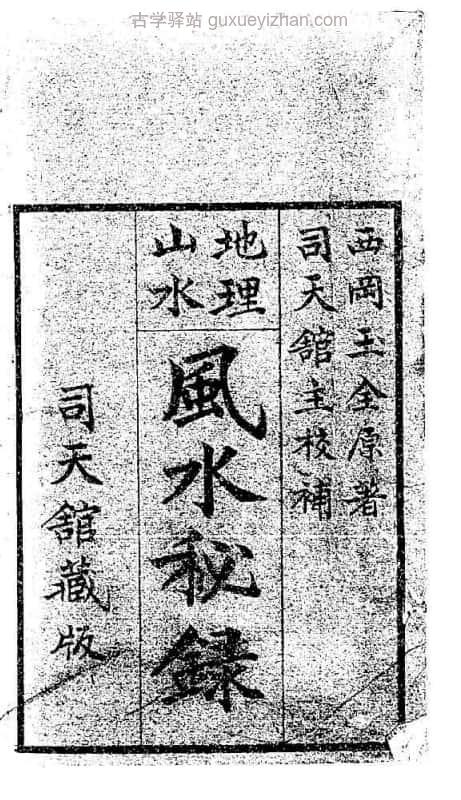 古学驿站 guxueyizhan.com
西岡玉全原著
司天舘主校補
地理
山水
風水秘録
司天舘藏版